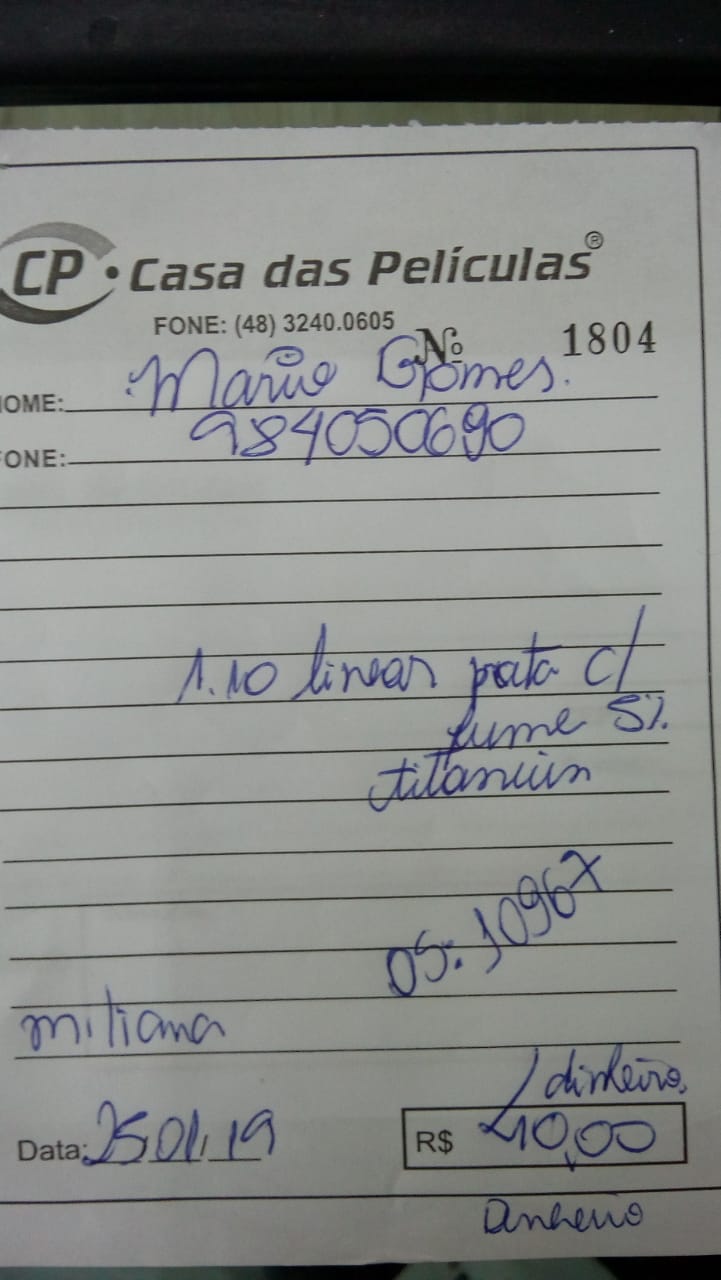 CP • Casa das Películas®
FONE: (48) 3240.0605
Nº 1804
OME: Mario Gomes.
FONE: 984050690
1.10 linear prata c/
fume 5%
titanium
OS: 10967
miliana
/ dinheiro,
Data: 25 01 19 R$ 40,00
Dinheiro